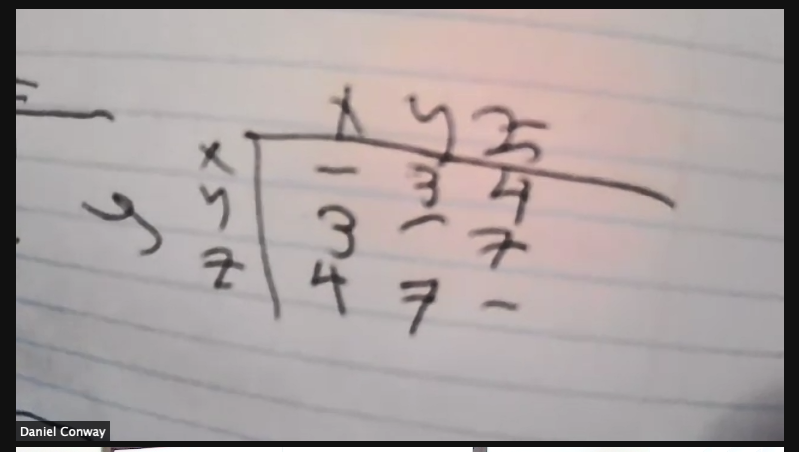 x y z
x - 3 4
y 3 - 7
z 4 7 -
Daniel Conway